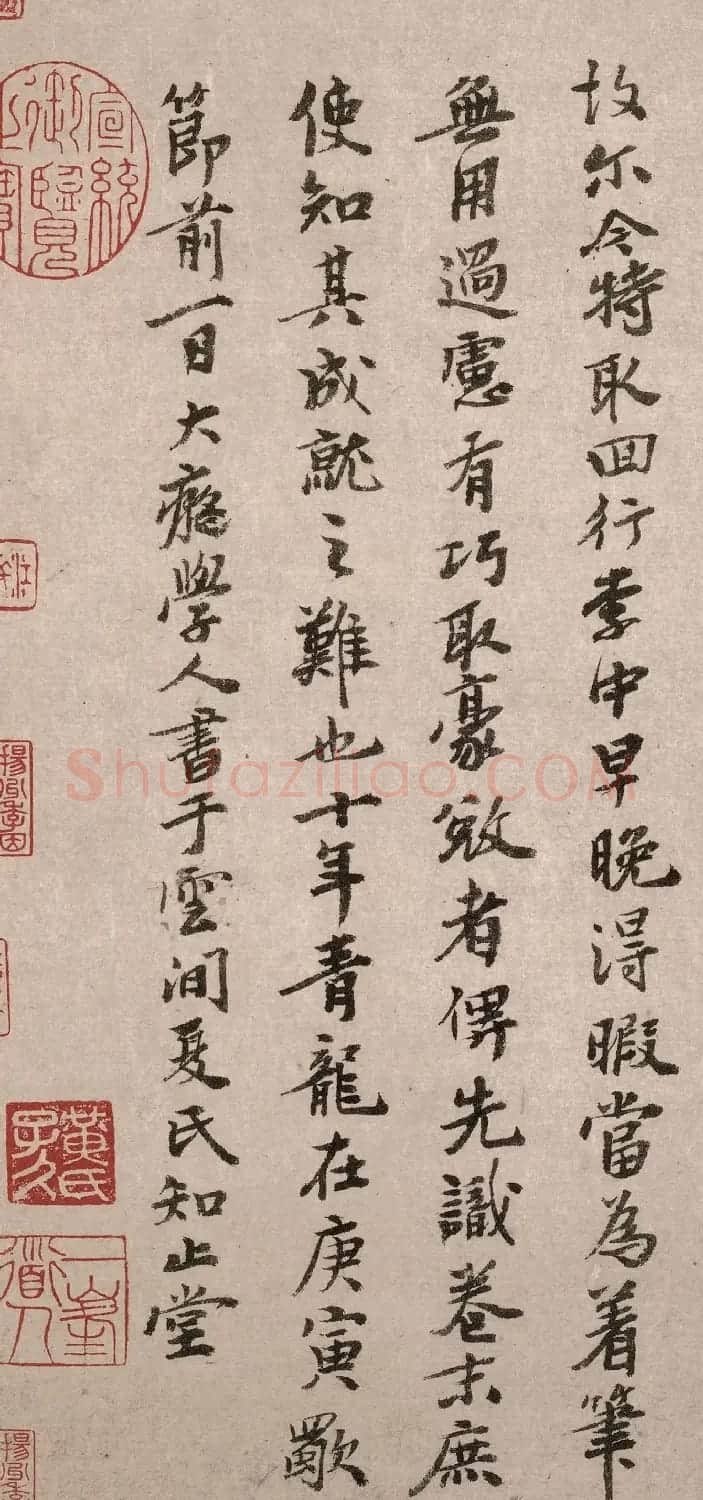 故尔今特取回行李中早晚得暇當為着筆
無用過慮有巧取豪敚者俾先識卷末庶
使知其成就之難也十年青龍在庚寅歜
節前一日大癡學人書于雲間夏氏知止堂
宣統御覽之寶
黃氏子久
一峯道人
Shufaziliao.COM